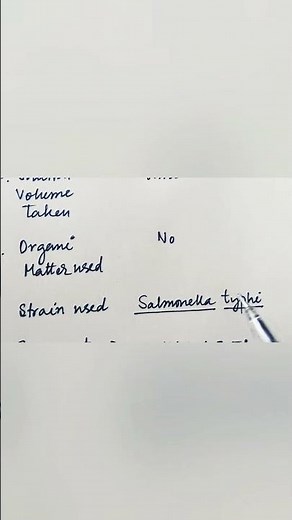 Volume
Taken
Organic No
Matter used
Strain used Salmonella typhi